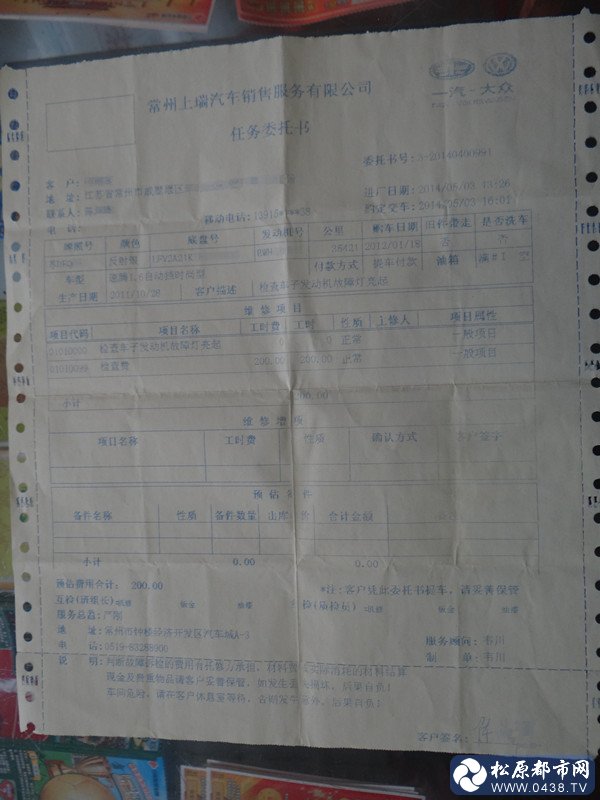 常州上瑞汽车销售服务有限公司
一汽-大众
任务委托书
委托书号：
客 户：
进厂日期：2014/05/03 13:26
地 址：江苏省常州市
约定交车：2014/05/03 16:01
联系人：
移动电话：13915****38
电 话：
牌照号 颜色 底盘号 发动机号 公里 购车日期 旧件带走 是否洗车
反射银 LFV2A21K 35421 2012/01/18 否 否
车型 1.6自动挡时尚型 付款方式 提车付款 油箱 满#I 空
生产日期 2011/10/28 客户描述 检查车子发动机故障灯亮起
维修项目
项目代码 项目名称 工时费 工时 性质 主修人 项目属性
01010000 检查车子发动机故障灯亮起 0 0 正常 一般项目
01010099 检查费 200.00 200.00 正常 一般项目
小计 200.00
维修增项
项目名称 工时费 性质 确认方式 客户签字
预估备件
备件名称 性质 备件数量 出库价 合计金额
小计 0.00 0.00
预估费用合计： 200.00
*注：客户凭此委托书提车，请妥善保管
互检(班组长)：机修 钣金 油漆 总检(质检员)：机修 钣金 油漆
服务总监：严刚
地 址：常州市钟楼经济开发区汽车城A-3
服务顾问：韦川
电 话：0519-83288900
制 单：韦川
说 明：判断故障拆检的费用有托修方承担，材料费按实际消耗的材料结算
现金及贵重物品请客户妥善保管，如发生丢失损坏，后果自负！
车间危险，请在客户休息室等待，否则发生意外，后果自负！
客户签名：
松原都市网
www.0438.TV